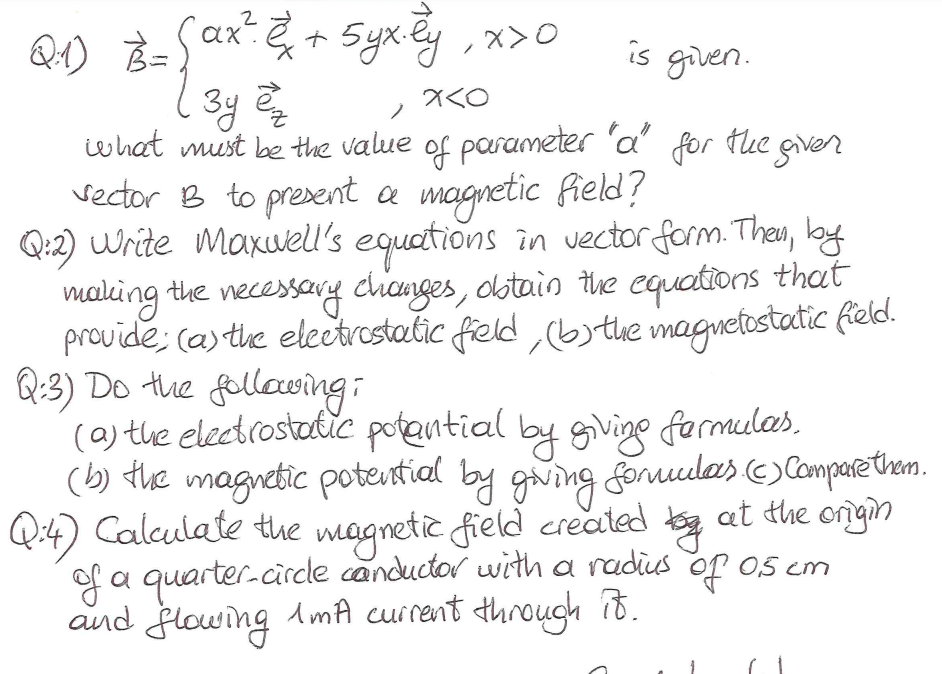 Q:1) B⃗ = { ax². e⃗x + 5yx. e⃗y , x>0
3y e⃗z , x<0
is given.
what must be the value of parameter "a" for the given
vector B to present a magnetic field?
Q:2) Write Maxwell's equations in vector form. Then, by
making the necessary changes, obtain the equations that
provide; (a) the electrostatic field, (b) the magnetostatic field.
Q:3) Do the following;
(a) the electrostatic potantial by giving farmulas.
(b) the magnetic potential by giving formulas. (c) Compare them.
Q:4) Calculate the magnetic field created at the origin
of a quarter-circle conductor with a radius of 0,5 cm
and flowing 1mA current through it.